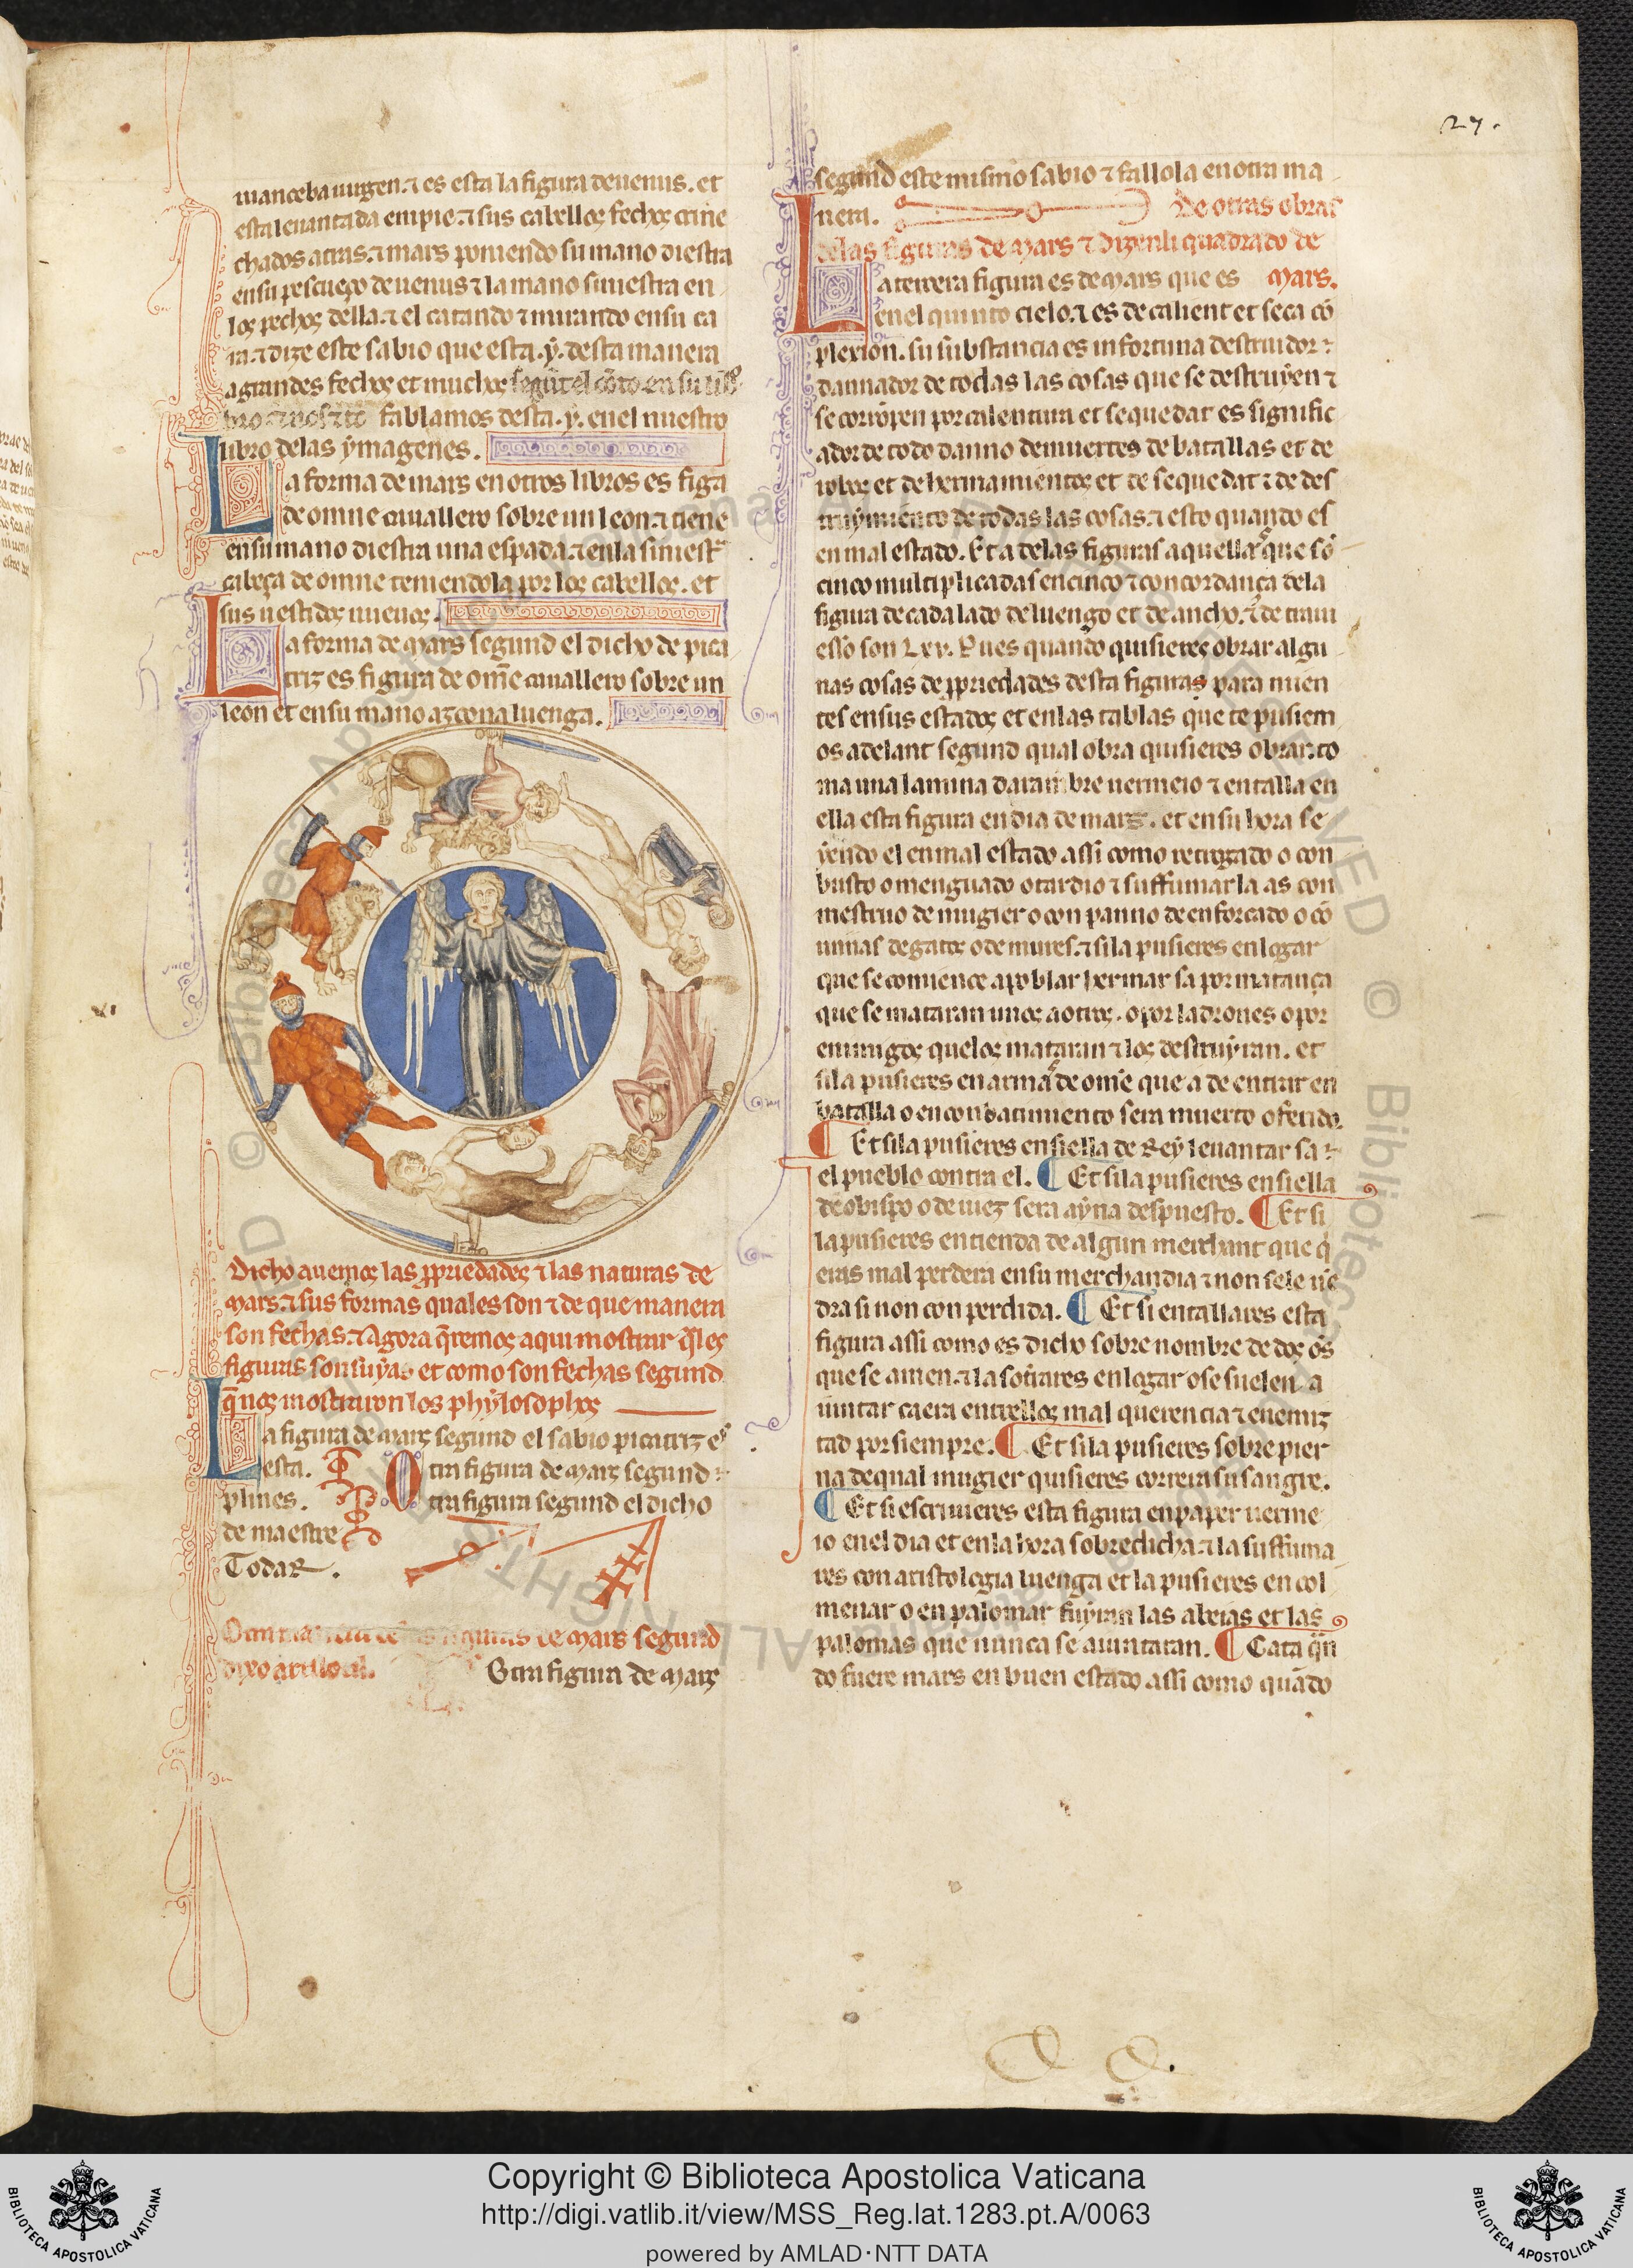 27.
manceba uirgen. ⁊ es esta la figura de uenus. et
esta leuantada en pie. ⁊ sus cabellos fechos crine
chados atras. ⁊ mars poniendo su mano diestra
en su pescueço de uenus ⁊ la mano siniestra en
los pechos della. ⁊ el catando ⁊ mirando en su ca
ra. ⁊ dize este sabio que esta .ẏ. desta manera
a grandes fechos et muchos
fablamos desta .ẏ. en el nuestro
libro delas ẏmagenes.
La forma de mars en otros libros es figa
de omne cauallero sobre un leon. ⁊ tiene
en su mano diestra una espada. ⁊ en la siniestra
cabeça de omne teniendola por los cabellos. et
sus uestidos nueuos.
La forma de Mars segund el dicho de pica
triz es figura de om̃e cauallero sobre un
leon et en su mano azcona luenga.
Dicho auemos las p̃priedades ⁊ las naturas de
Mars. ⁊ sus formas quales son ⁊ de que manera
son fechas. ⁊ Agora q̃remos aqui mostrar q̃les
figuras son suẏas et como son fechas segund
q̃ nos mostraron los phẏlosophos
La figura de Mars segund el sabio picatriz es
esta. Otra figura de Mars segund
plines. Otra figura segund el dicho
de maestre
Todar.
figuras de Mars segund
dixo
Otra figura de Mars
segund este mismo sabio ⁊ fallola en otra ma
nera. De otras obras
delas figuras de Mars ⁊ dizenli quadrado de
La tercera figura es de Mars que es Mars.
en el quinto cielo. ⁊ es de calient et seca cõ
plexion. su substancia es infortuna destruidor ⁊
dannador de todas las cosas que se destruẏen ⁊
se corrõpen por calentura et sequedat es signific
ador de todo danno de muertes de batallas et de
robos et de hermamientos et de sequedat ⁊ de des
truẏmiento de todas las cosas. ⁊ esto quando es
en mal estado. Et a delas figuras aquella que sõ
cinco multiplicadas en cinco ⁊ concordança dela
figura de cada lado de luengo et de ancho. ⁊ de traui
esso son Lxv. Pues quando quisieres obrar algu
nas cosas de p̃priedades desta figuras para mien
tes en sus estados et en las tablas que te pusiem
os adelant segund qual obra quisieres obrar. to
ma una lamina darambre uermeio ⁊ entalla en
ella esta figura en dia de mars. et en su hora se
ẏendo el en mal estado assi como retrogado o con
busto o menguado o tardio ⁊ suffumar la as con
mestruo de mugier o con panno de enforcado o cõ
urinas de gatos o de mures. ⁊ si la pusieres en logar
que se comience a poblar hermar sa por matança
que se mataran unos a otros. o por ladrones o por
enimigos que los mataran ⁊ los destruẏran. et
si la pusieres en arma de om̃e que a de entrar en
batalla o en conbatimiento sera muerto o ferido.
¶ Et si la pusieres en siella de Reẏ leuantar sa
el pueblo contra el. ¶ Et si la pusieres en siella
de obispo o de iuez sera aẏna despuesto. ¶ Et si
la pusieres en tienda de algun merchant que q̃
eras mal perdera en su merchandia ⁊ non se le uẽ
dra si non con perdida. ¶ Et si entallares esta
figura assi como es dicho sobre nombre de dos õs
que se amen. ⁊ la soterares en logar o se suelen a
iuntar caera entrellos mal querencia ⁊ enemiz
tad por siempre. ¶ Et si la pusieres sobre pier
na de qual mugier quisieres correra su sangre.
¶ Et si escriuieres esta figura en paper uerme
io en el dia et en la hora sobredicha. ⁊ la suffuma
res con aristologia luenga et la pusieres en col
menar o en palomar fuẏran las abeias et las
palomas que nunca se aiuntaran. ¶ Cata q̃n
do fuere mars en buen estado assi como quãdo
Copyright © Biblioteca Apostolica Vaticana
http://digi.vatlib.it/view/MSS_Reg.lat.1283.pt.A/0063
powered by AMLAD·NTT DATA
BIBLIOTECA APOSTOLICA VATICANA
BIBLIOTECA APOSTOLICA VATICANA